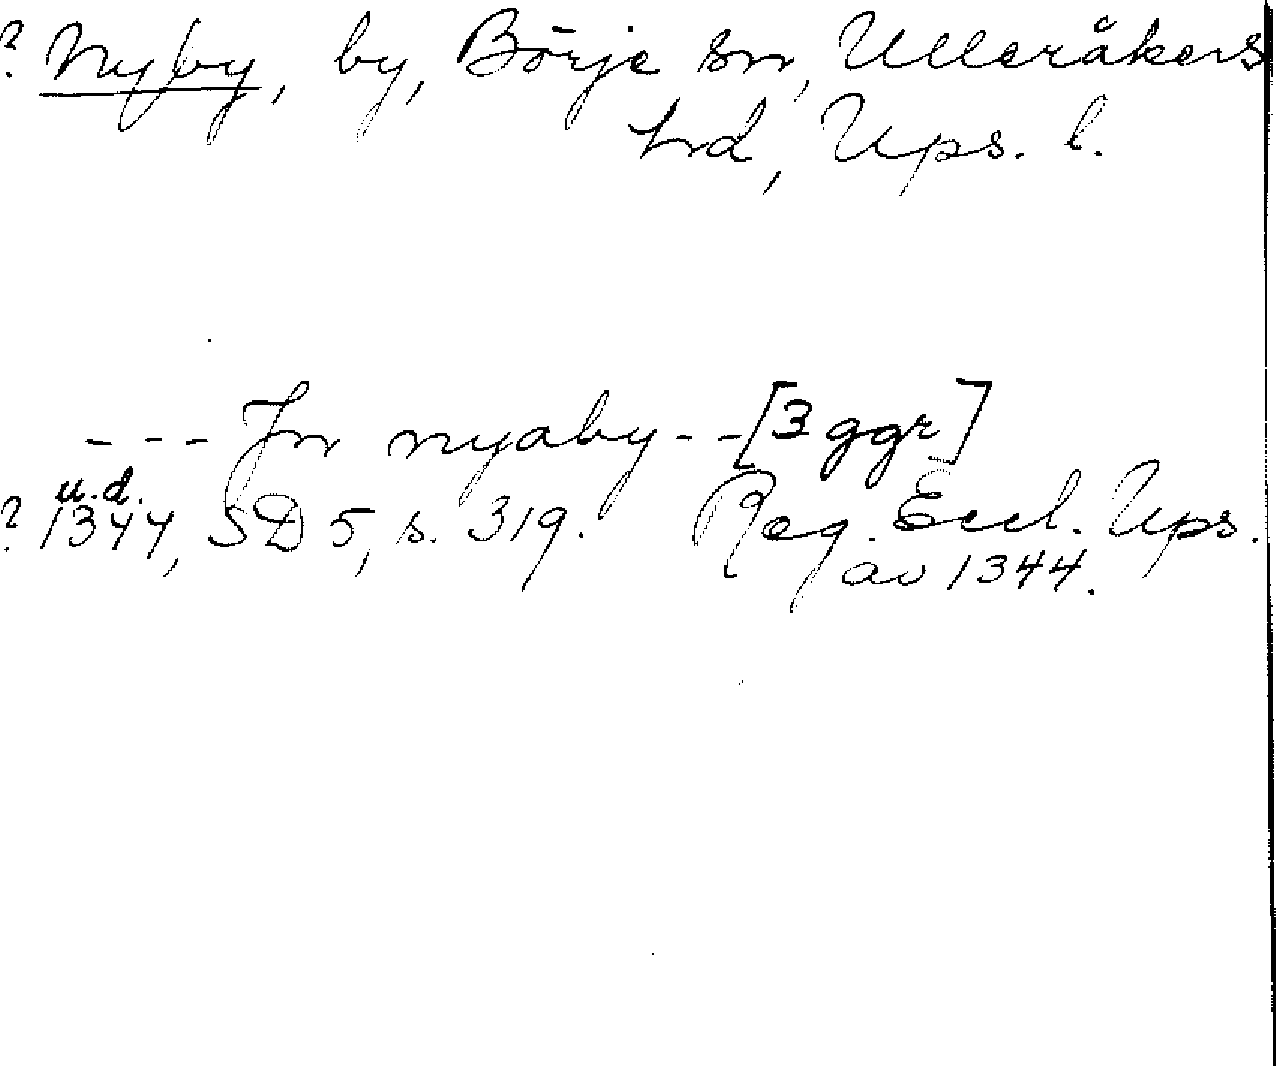 ? Nyby, by, Börje sn, Ulleråkers
hd, Ups. l.
--- Jn nyaby -- [3 ggr]
u.d.
? 1344, SD 5, s. 319. Reg. Eccl. Ups.
av 1344.